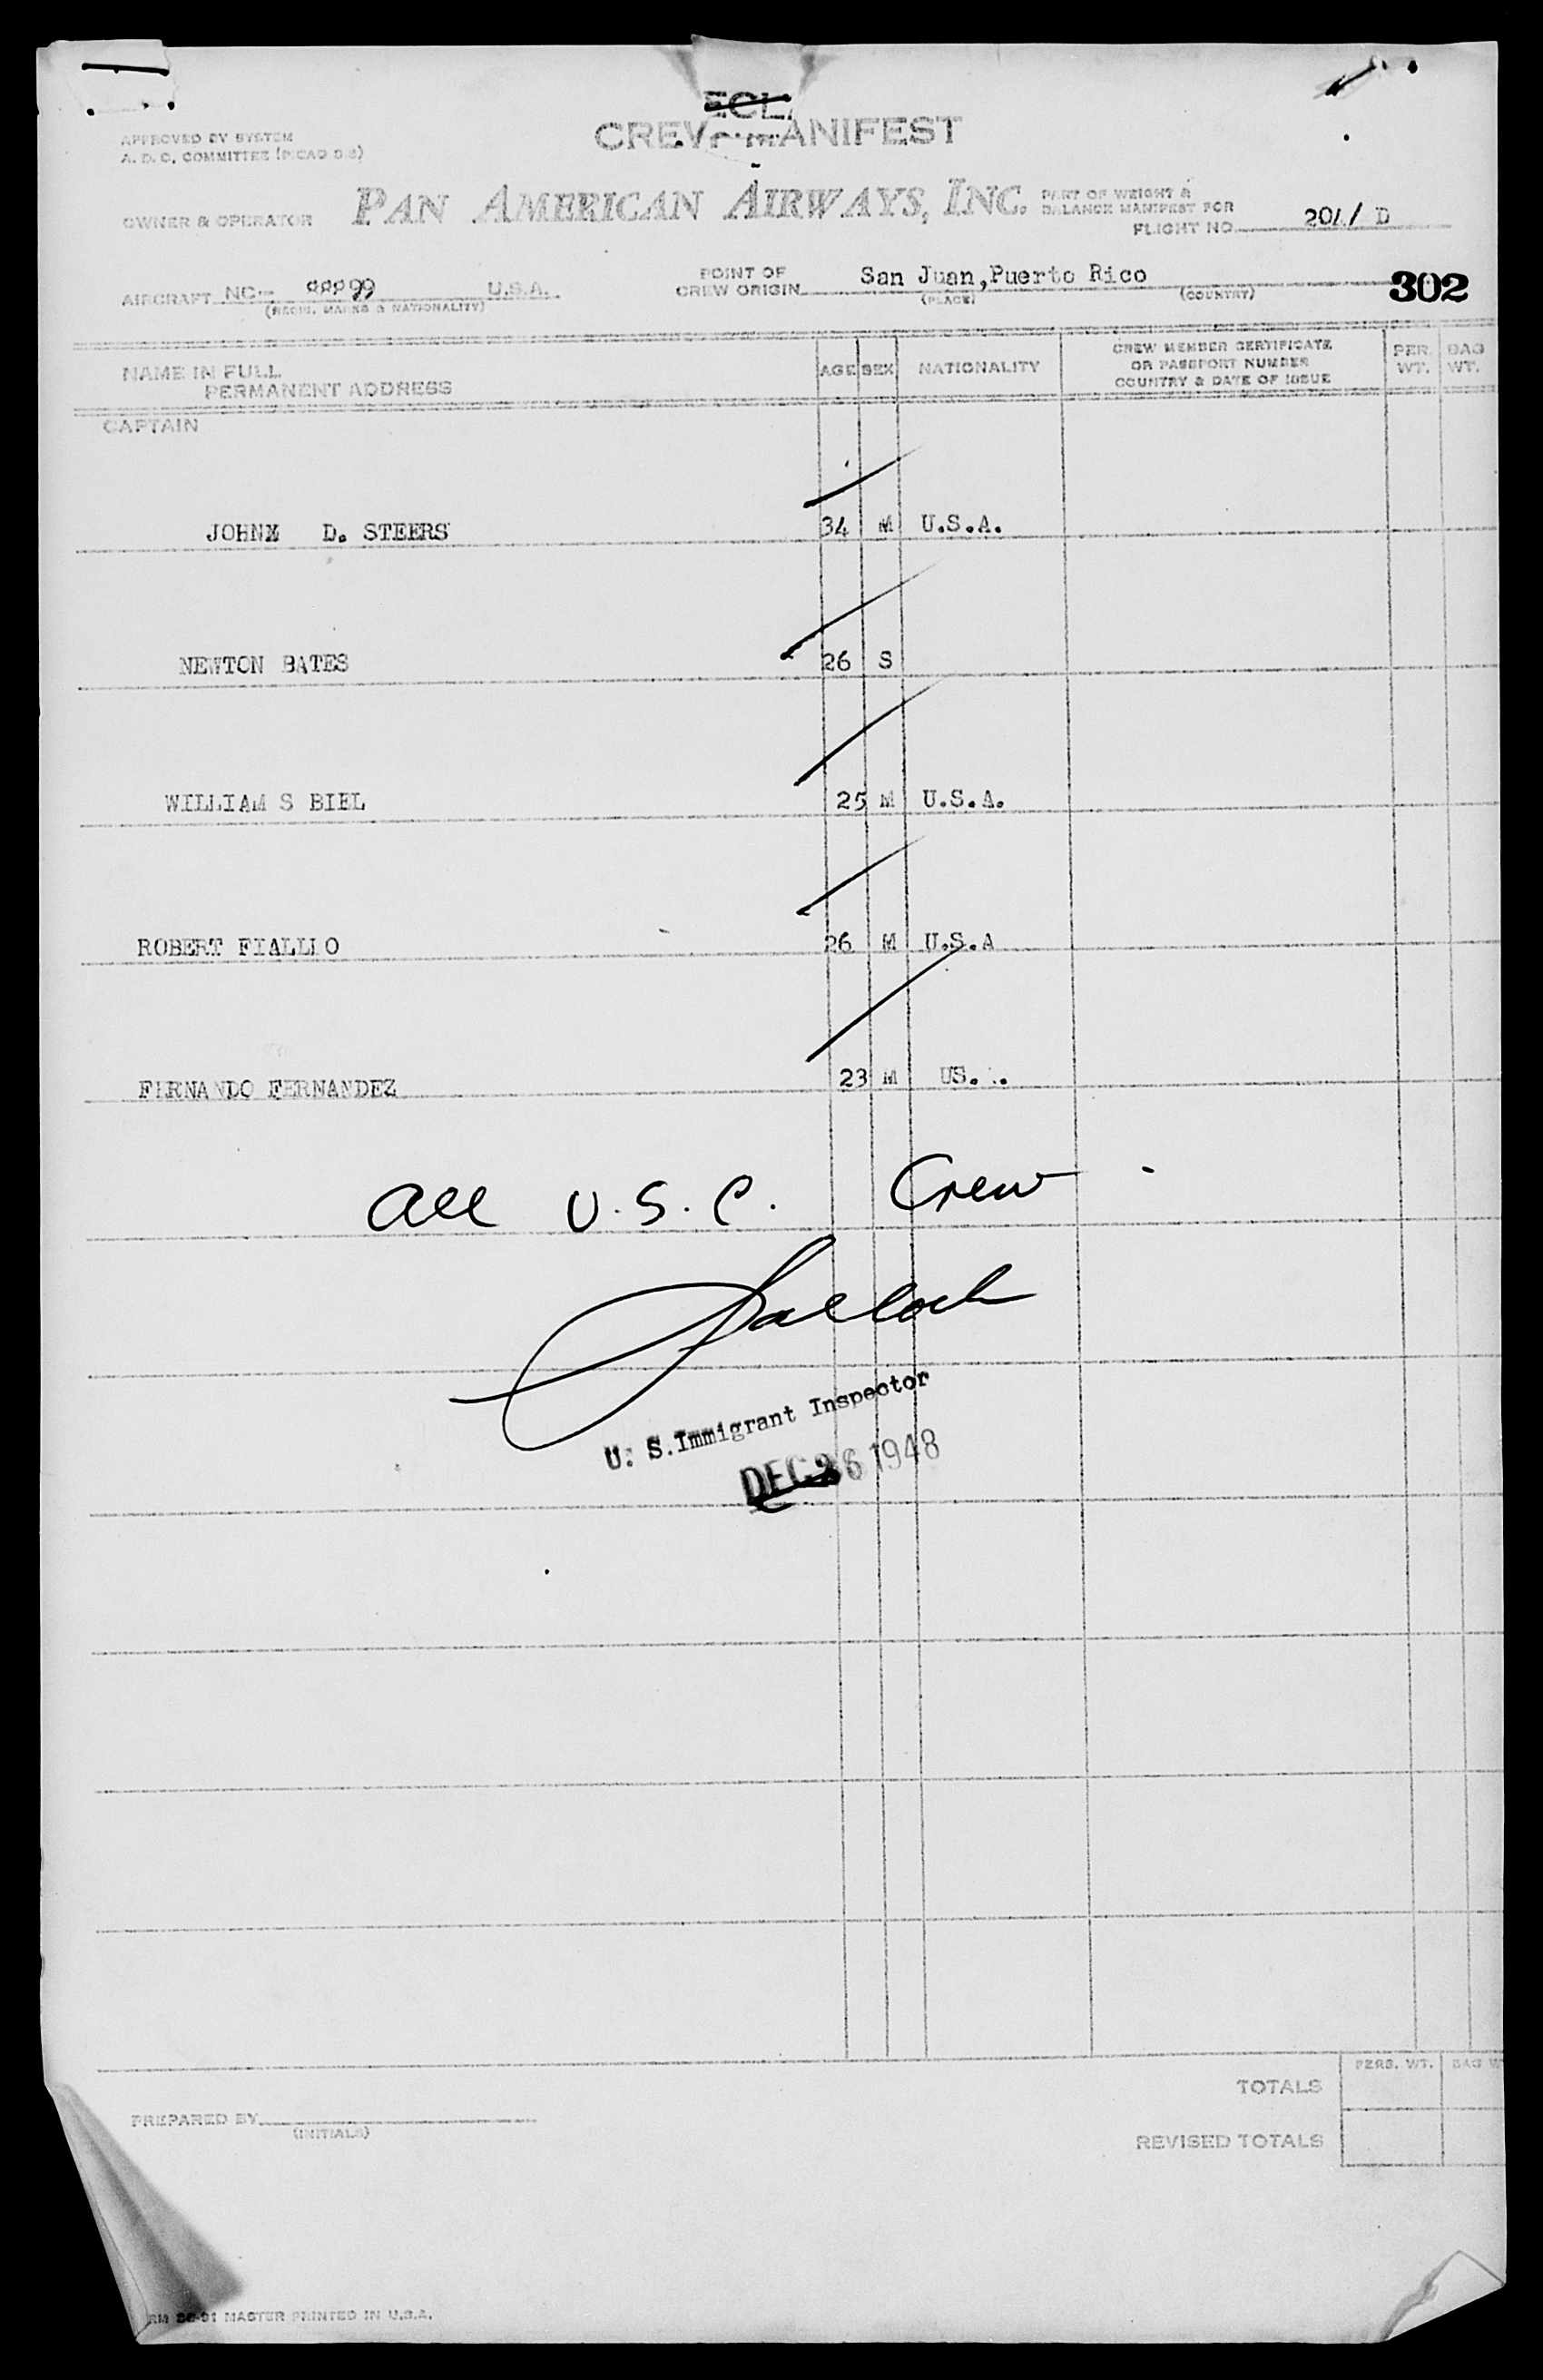 CREW MANIFEST
APPROVED BY SYSTEM
A. D. C. COMMITTEE (PICAO
OWNER & OPERATOR PAN AMERICAN AIRWAYS, INC. PART OF WEIGHT &
BALANCE MANIFEST FOR
FLIGHT NO. D
AIRCRAFT NC- U.S.A. POINT OF
CREW ORIGIN San Juan,Puerto Rico 302
(REGIS. MARKS & NATIONALITY) (PLACE) (COUNTRY)
NAME IN FULL
PERMANENT ADDRESS AGE SEX NATIONALITY CREW MEMBER CERTIFICATE
OR PASSPORT NUMBER
COUNTRY & DATE OF ISSUE PER. WT. BAG WT.
CAPTAIN
D. STEERS 34 M U.S.A.
NEWTON BATES 26 S
WILLIAM S BIEL 25 M U.S.A.
ROBERT FIALLO 26 M U.S.A
FERNANDO FERNANDEZ 23 M US.
All U.S.C. Crew
U. S. Immigrant Inspector
DEC 26 1948
PERS. WT. BAG W
TOTALS
PREPARED BY
(INITIALS)
REVISED TOTALS
MASTER PRINTED IN U.S.A.